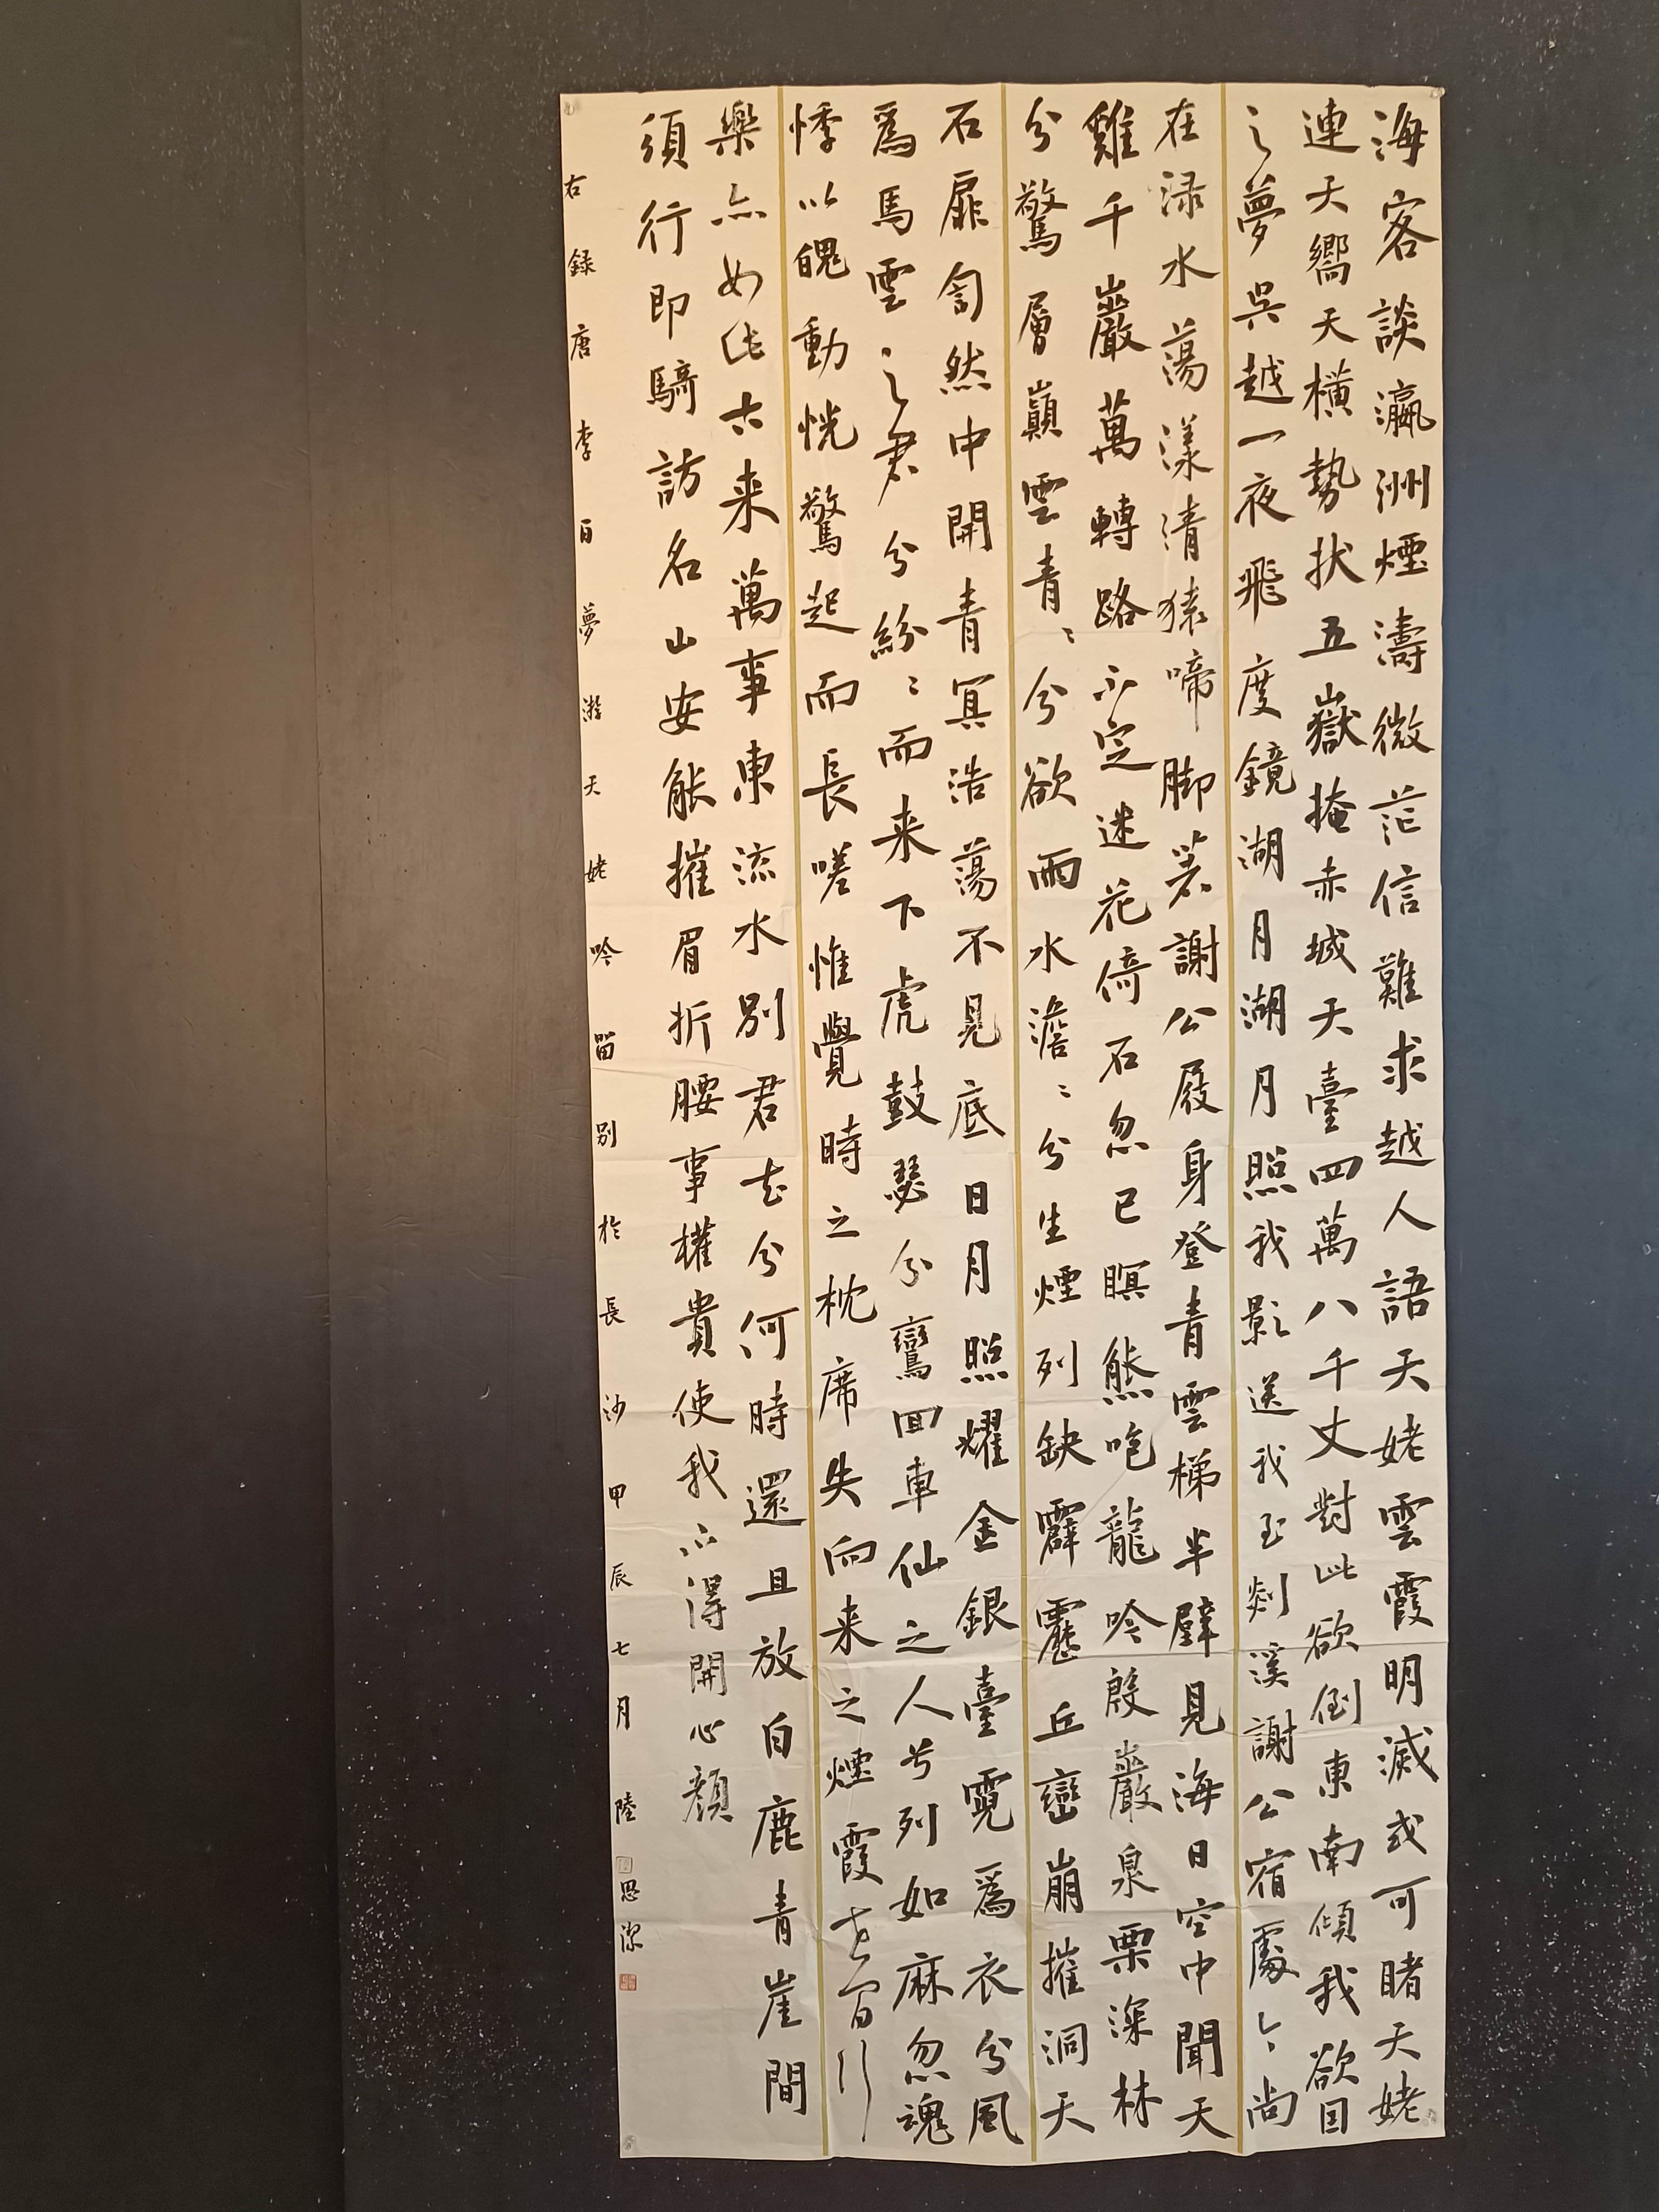 海客談瀛洲煙濤微茫信難求越人語天姥雲霞明滅或可睹天姥
連天嚮天橫勢拔五嶽掩赤城天臺四萬八千丈對此欲倒東南傾我欲因
之夢吳越一夜飛度鏡湖月湖月照我影送我至剡溪謝公宿處今尚
在淥水蕩漾清猿啼腳著謝公屐身登青雲梯半壁見海日空中聞天
雞千巖萬轉路不定迷花倚石忽已暝熊咆龍吟殷巖泉栗深林
兮驚層巔雲青〻兮欲雨水澹〻兮生煙列缺霹靂丘巒崩摧洞天
石扉訇然中開青冥浩蕩不見底日月照耀金銀臺霓爲衣兮風
爲馬雲之君兮紛〻而来下虎鼓瑟兮鸞回車仙之人兮列如麻忽魂
悸以魄動恍驚起而長嗟惟覺時之枕席失向来之煙霞世間行
樂亦如此古来萬事東流水別君去兮何時還且放白鹿青崖間
須行即騎訪名山安能摧眉折腰事權貴使我不得開心顏
右録唐李白夢遊天姥吟留別於長沙甲辰七月陸思潔